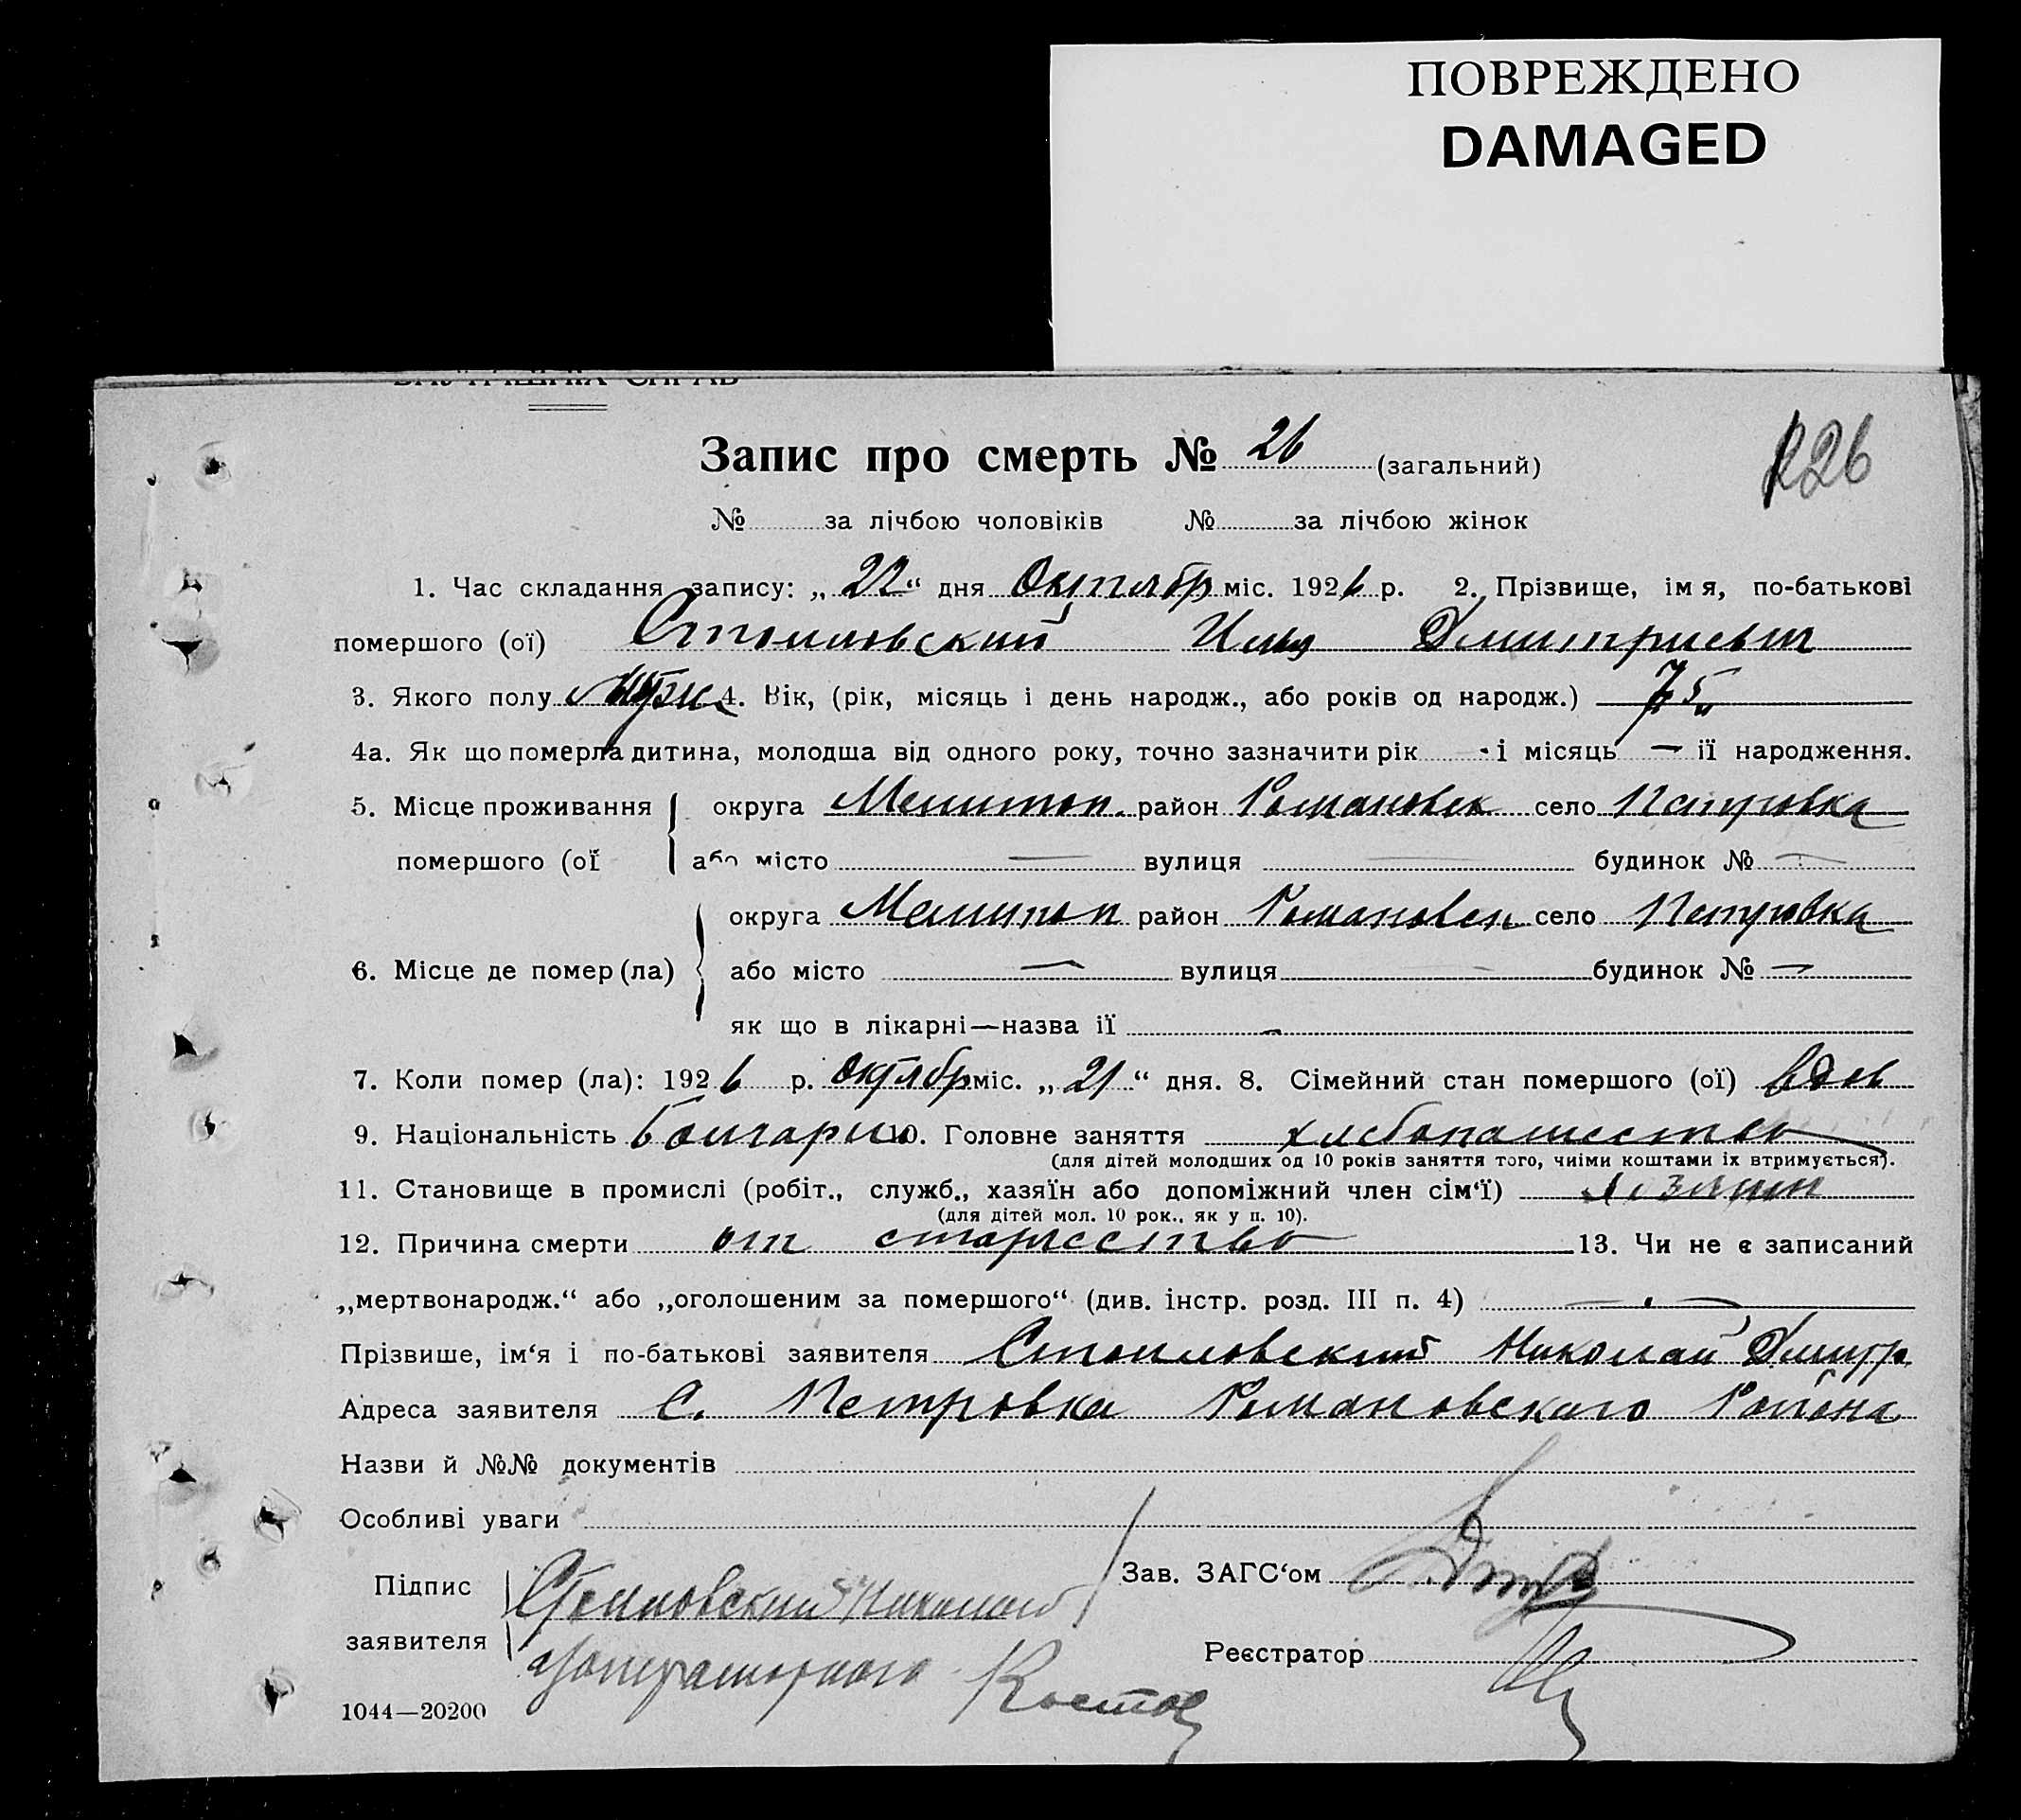 ПОВРЕЖДЕНО
DAMAGED
Запис про смерть № 26 (загальний)
226
№ за лічбою чоловіків № за лічбою жінок
1. Час складання запису: „22“ дня Октябр міс. 1926 р. 2. Прізвище, імя, по-батькові
помершого (ої) Стоиловский Илья Дмитриевич
3. Якого полу муж 4. Вік, (рік, місяць і день народж., або років од народж.) 75
4а. Як що померла дитина, молодша від одного року, точно зазначити рік - і місяць — її народження.
5. Місце проживання округа Мелитоп. район Романовск село Петровка
помершого (ої або місто — вулиця — будинок № —
округа Мелитоп район Романовск село Петровка
6. Місце де помер (ла) або місто — вулиця — будинок № —
як що в лікарні—назва її -
7. Коли помер (ла): 1926 р. Октябр міс. „21“ дня. 8. Сімейний стан помершого (ої) вдов
9. Національність Болгарин 10. Головне заняття хлебопашество
(для дітей молодших од 10 років заняття того, чиїми коштами їх втримується).
11. Становище в промислі (робіт., служб., хазяїн або допоміжний член сім‘ї) хозяин
(для дітей мол. 10 рок., як у п. 10).
12. Причина смерти от 13. Чи не є записаний
„мертвонародж.“ або „оголошеним за помершого“ (див. інстр. розд. III п. 4) —
Прізвише, ім‘я і по-батькові заявителя Стоиловский Николай Дмитр
Адреса заявителя С. Петровка Романовского Района
Назви й №№ документів
Особливі уваги
Підпис Стоиловский Николай Зав. ЗАГС‘ом
заявителя Реєстратор
1044—20200